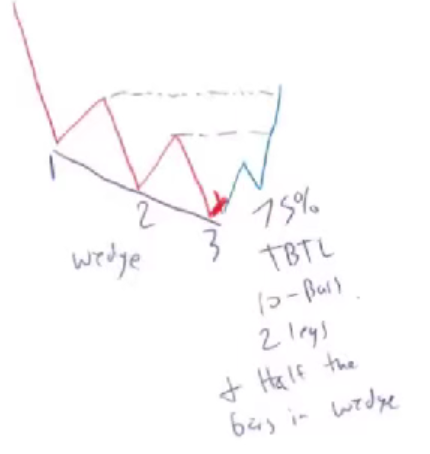 1
2
3
wedge
75%
TBTL
10-Bars
2 legs
+ Half the
bars in wedge